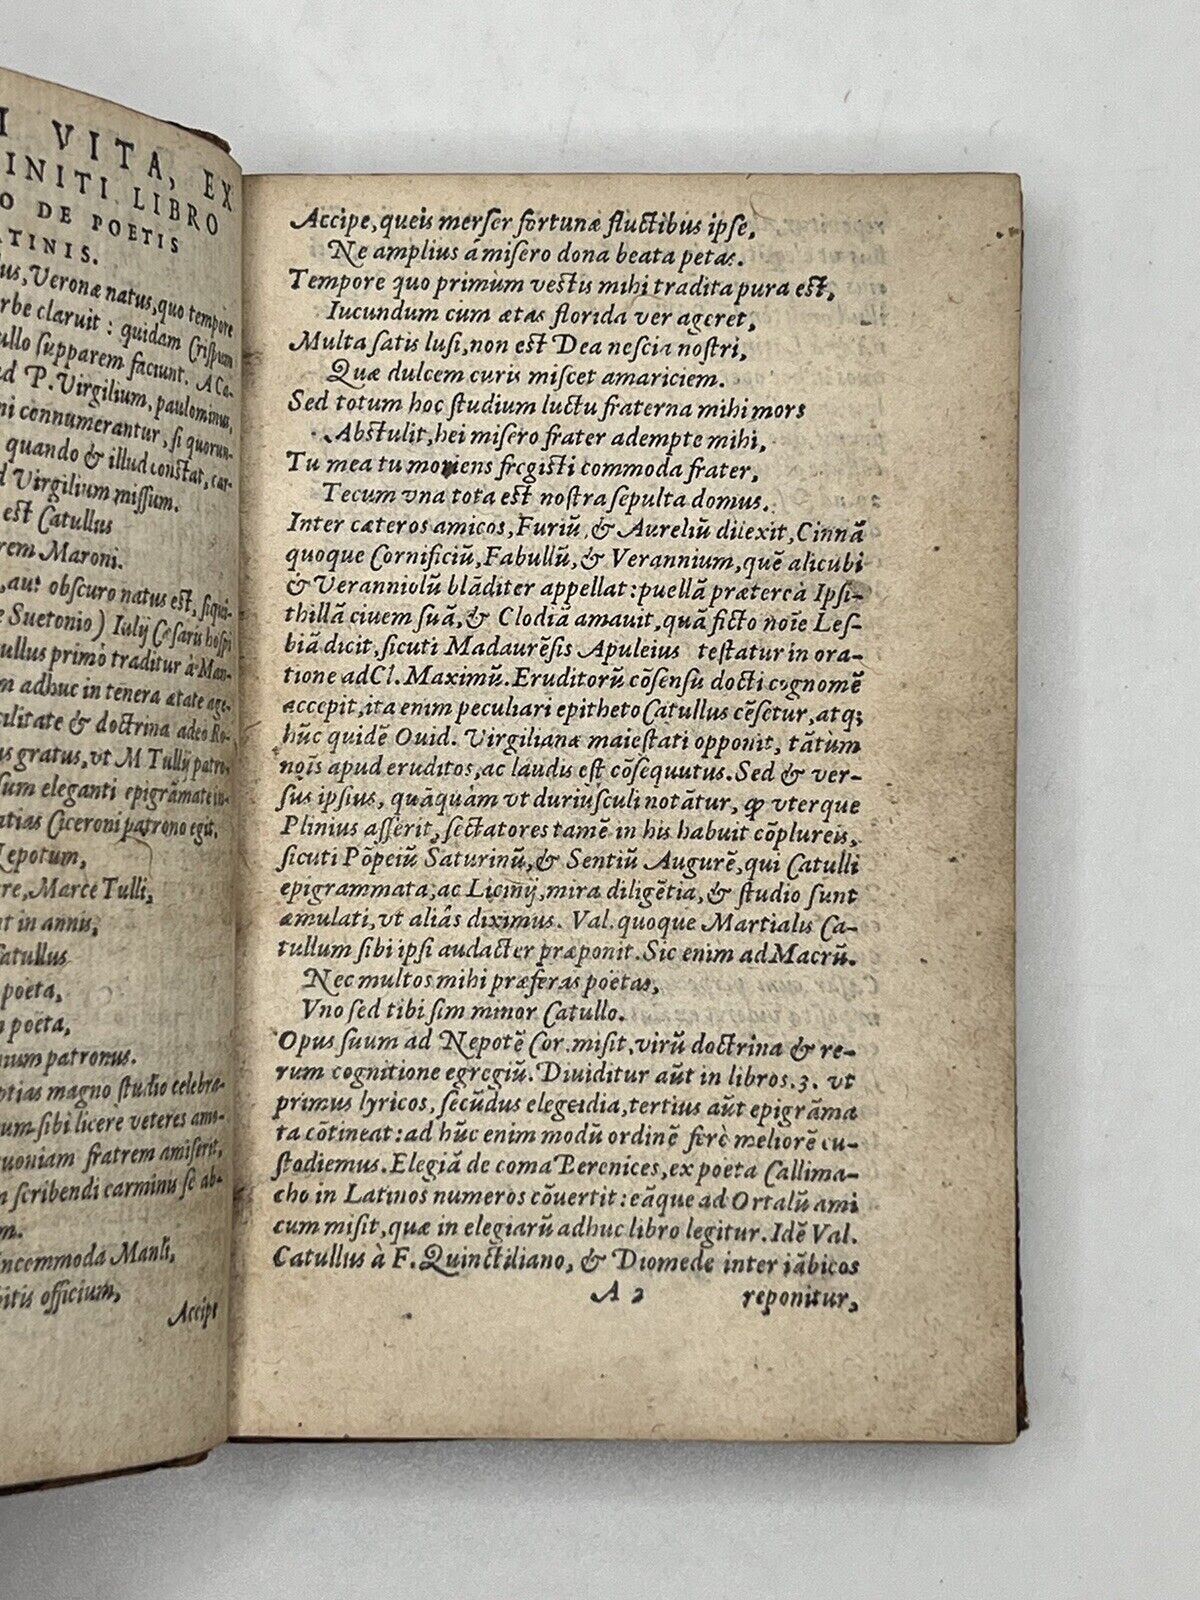 I VITA, EX
INITI LIBRO
O DE POETIS
ATINIS.
lus, Veronæ natus, quo tempore
rbe claruit: quidam Crispum
ullo supparem faciunt. A Ca-
ad P. Virgilium, paulominus,
ni connumerantur, si quorun-
quando & illud constat, car-
d Virgilium missum.
est Catullus
rem Maroni.
, aut obscuro natus est, siqui-
e Suetonio) Iulij Cęsarũ hospi
ullus primò traditur à Man-
m adhuc in tenera ætate age-
ulitate & doctrina adeò Ro-
us gratus, vt M Tullij patro-
sum eleganti epigrãmate in-
atias Ciceroni patrono egit.
Nepotum,
re, Marce Tulli,
t in annis,
Catullus
poëta,
poëta,
nium patronus.
ptias magno studio celebra-
um sibi licere veteres ami-
uoniam fratrem amiserit,
scribendi carminis se ab-
m.
incommoda Manli,
pitis officium,
Accipe
Accipe, queis merser fortunæ fluctibus ipse,
Ne amplius á misero dona beata petas.
Tempore quo primùm vestis mihi tradita pura est,
Iucundum cum ætas florida ver ageret,
Multa satis lusi, non est Dea nescia nostri,
Quæ dulcem curis miscet amariciem.
Sed totum hoc studium luctu fraterna mihi mors
Abstulit, hei misero frater adempte mihi,
Tu mea tu moriens fregisti commoda frater,
Tecum vna tota est nostra sepulta domus.
Inter cæteros amicos, Furiũ, & Aureliũ dilexit, Cinnã
quoque Cornificiũ, Fabullũ, & Verannium, quẽ alicubi
& Veranniolũ blãditer appellat: puellã prætercà Ipsi-
thillã ciuem suã, & Clodiã amauit, quã ficto noĩe Les-
biã dicit, sicuti Madaurẽsis Apuleius testatur in ora-
tione ad Cl. Maximũ. Eruditorũ cõsensu docti cognomẽ
accepit, ita enim peculiari epitheto Catullus cẽsetur, atq;
hũc quidẽ Ouid. Virgilianæ maiestati opponit, tãtùm
noĩs apud eruditos, ac laudis est cõsequutus. Sed & ver-
sus ipsius, quãquàm vt duriusculi notãtur, ꝙ vterque
Plinius asserit, sectatores tamẽ in his habuit cõplureis,
sicuti Põpeiũ Saturinũ, & Sentiũ Augurẽ, qui Catulli
epigrammata, ac Licinij, mira diligẽtia, & studio sunt
æmulati, vt aliâs diximus. Val. quoque Martialis Ca-
tullum sibi ipsi audacter præponit. Sic enim ad Macrũ.
Nec multos mihi præferas poëtas,
Vno sed tibi sim minor Catullo.
Opus suum ad Nepotẽ Cor. misit, virũ doctrina & re-
rum cognitione egregiũ. Diuiditur aũt in libros. 3. vt
primus lyricos, secũdus elegeidia, tertius aũt epigrãma
ta cõtineat: ad hũc enim modũ ordinẽ ferè meliorẽ cu-
stodiemus. Elegiã de coma Berenices, ex poëta Callima-
cho in Latinos numeros cõuertit: eãque ad Ortalũ ami
cum misit, quæ in elegiarũ adhuc libro legitur. Idẽ Val.
Catullus à F. Quinctiliano, & Diomede inter iãbicos
A 2
reponitur,